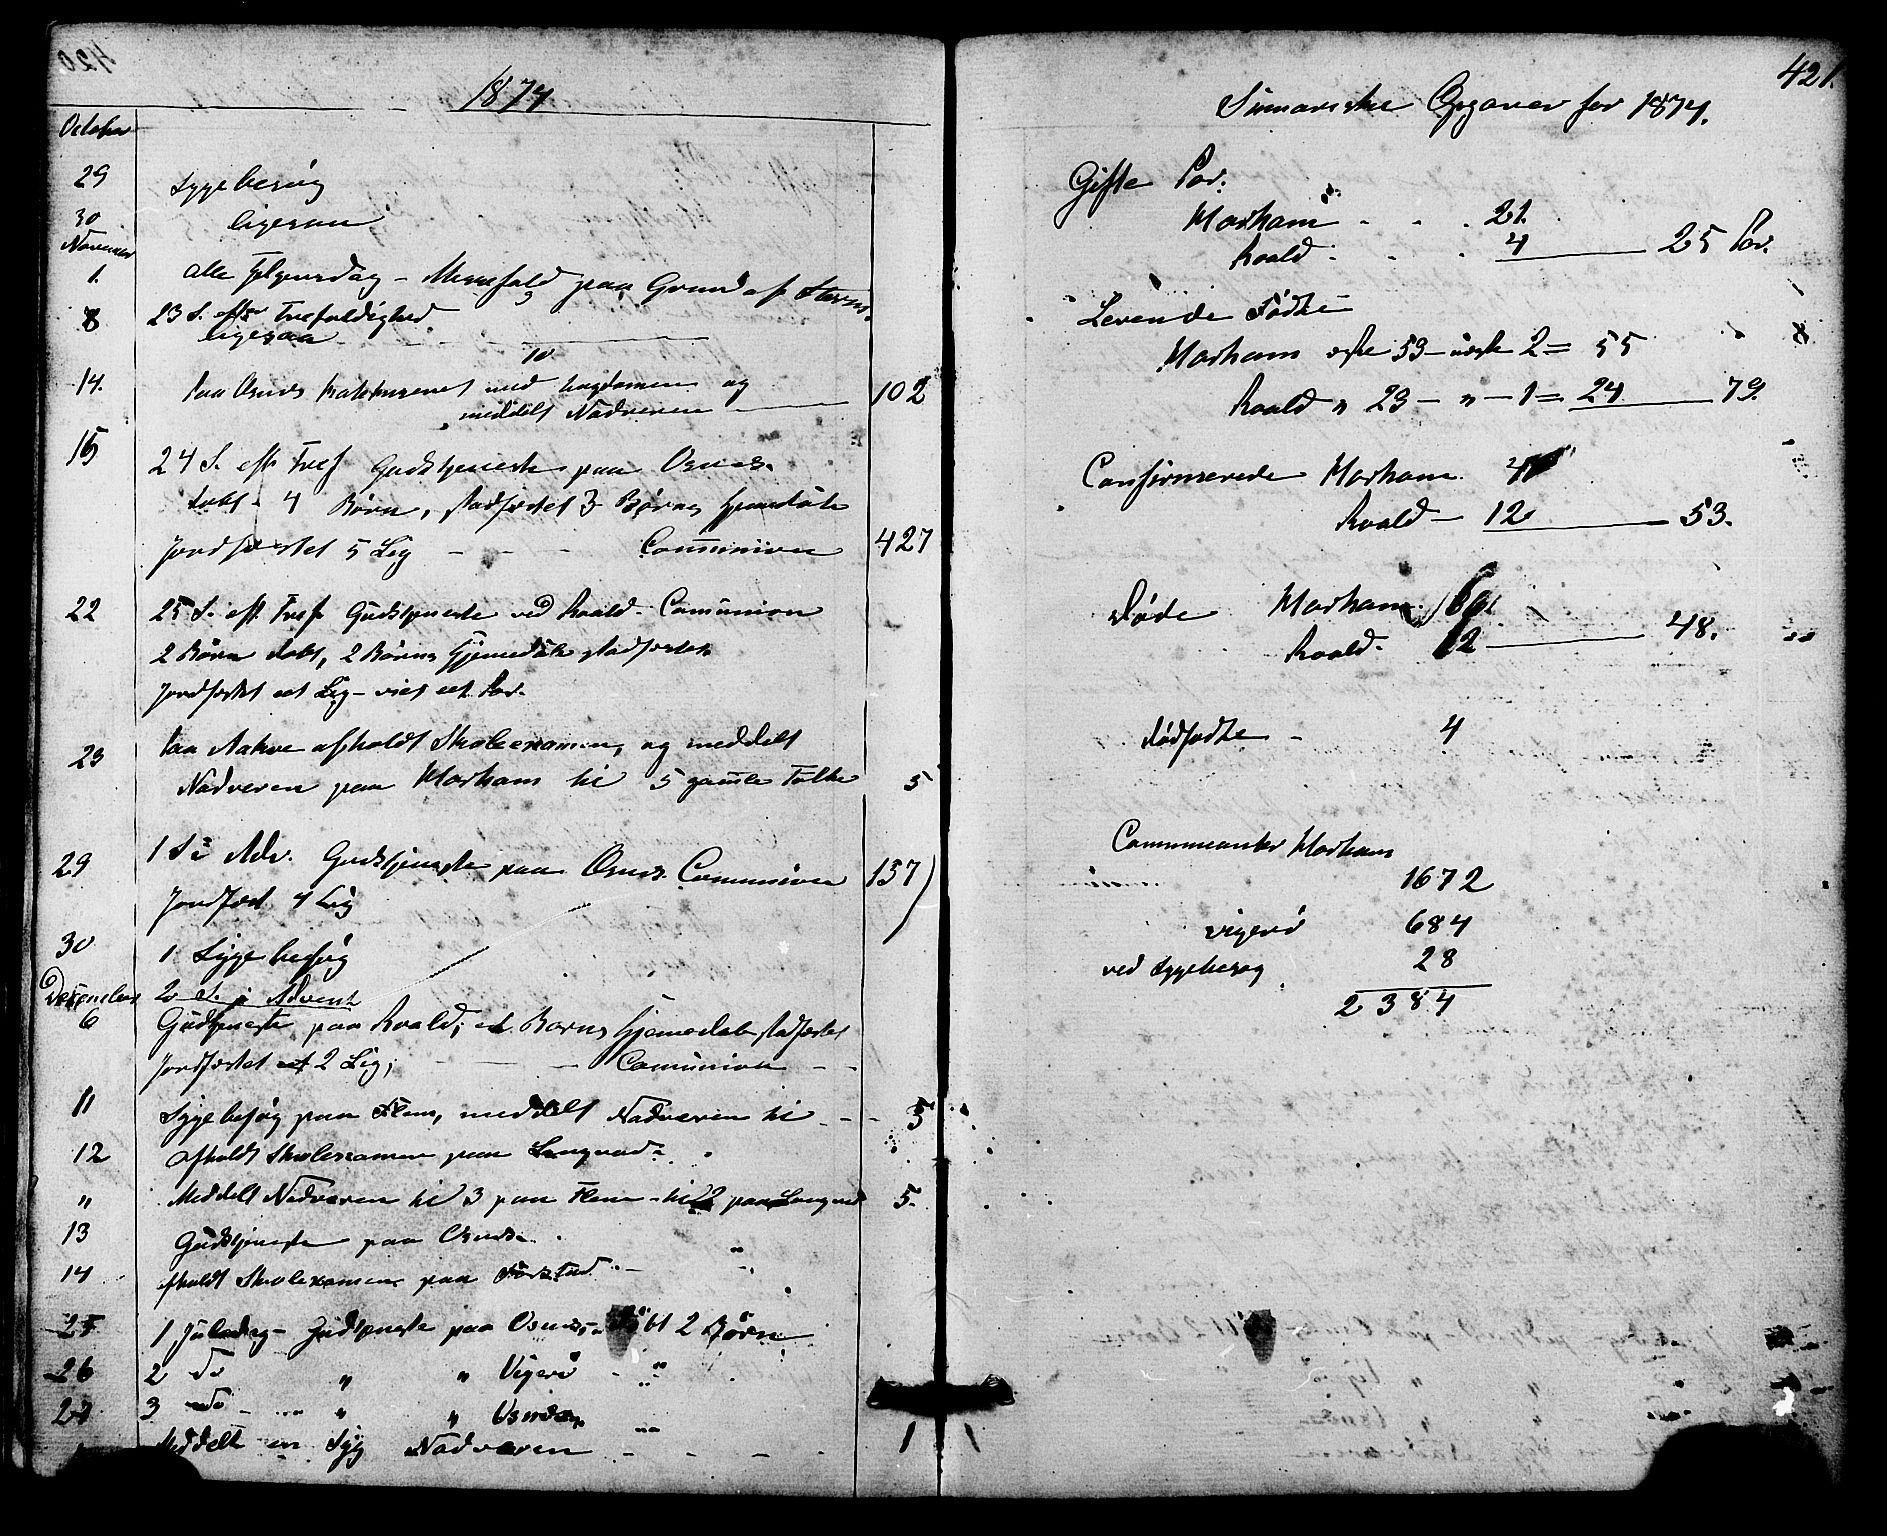 1874
October
29 Sygebesøg
30 ligesaa
November
1. alle Helgensdag - Messefald paa Grund af Storm.
8 23 S. eftr Trefoldighed
ligesaa
14. paa Osnes med og
meddelt Nadveren 102
15 24 S. eft Tref Gudstjeneste paa Osnes.
Døbt - 4 Børn, stadfæstet 3 Børns Hjemedåb
Jordfæstet 5 Lig - - - Communion 427
22 25 S. eft Tref Gudstjeneste ved Roald - Comunion
2 Børn døbt, 2 Børns Hjemedåb stadfæstet
Jordfæstet et Lig - viet et Par.
23 paa Aakre afholdt Skoleexamen, og meddelt
Nadveren paa Harham til 5 gamle Folke 5
29 1 S i Adv. Gudstjeneste paa Osnes. Communion 157)
Jordfæst 4 Lig
30 1 Sygebesøg
December 2 S. i Advent
6 Gudstjeneste paa Roald; et Barns Hjemedåb stadfæstet
Jordfæstet 2 Lig; - - Comunion - -
11 Sygebesøg paa Flem, meddelt Nadveren til - - 5
12 afholdt Skolexamen paa Longvad
" Meddelt Nadveren til 3 paa Flem - til 2 paa Longvad 5.
13 Gudstjeneste paa Osnes.
14 afholdt Skolexamen paa
25 1 Juledag - Gudstjeneste paa Osnes, - Døbt 2 Børn
26 2 Do " " Vigerø
27 3 Do - " " Osnes
Meddelt en Syg Nadveren - - - - 1
421.
Sumariske Opgaver for 1874.
Gifte Par.
Harham - . . 21.
Roald . . . 4 25 Par.
Levende Fødte
Harham ægte 53 - uægte 2 = 55
Roald " 23 - " - 1 = 24 79.
Confirmerede Harham. 41
Roald - 12 53.
Døde Harham.
Roald - 12 48.
dødfødte - 4
Communicanter Harham
1672
Vigerø 684
ved Sygebesøg 28
2384